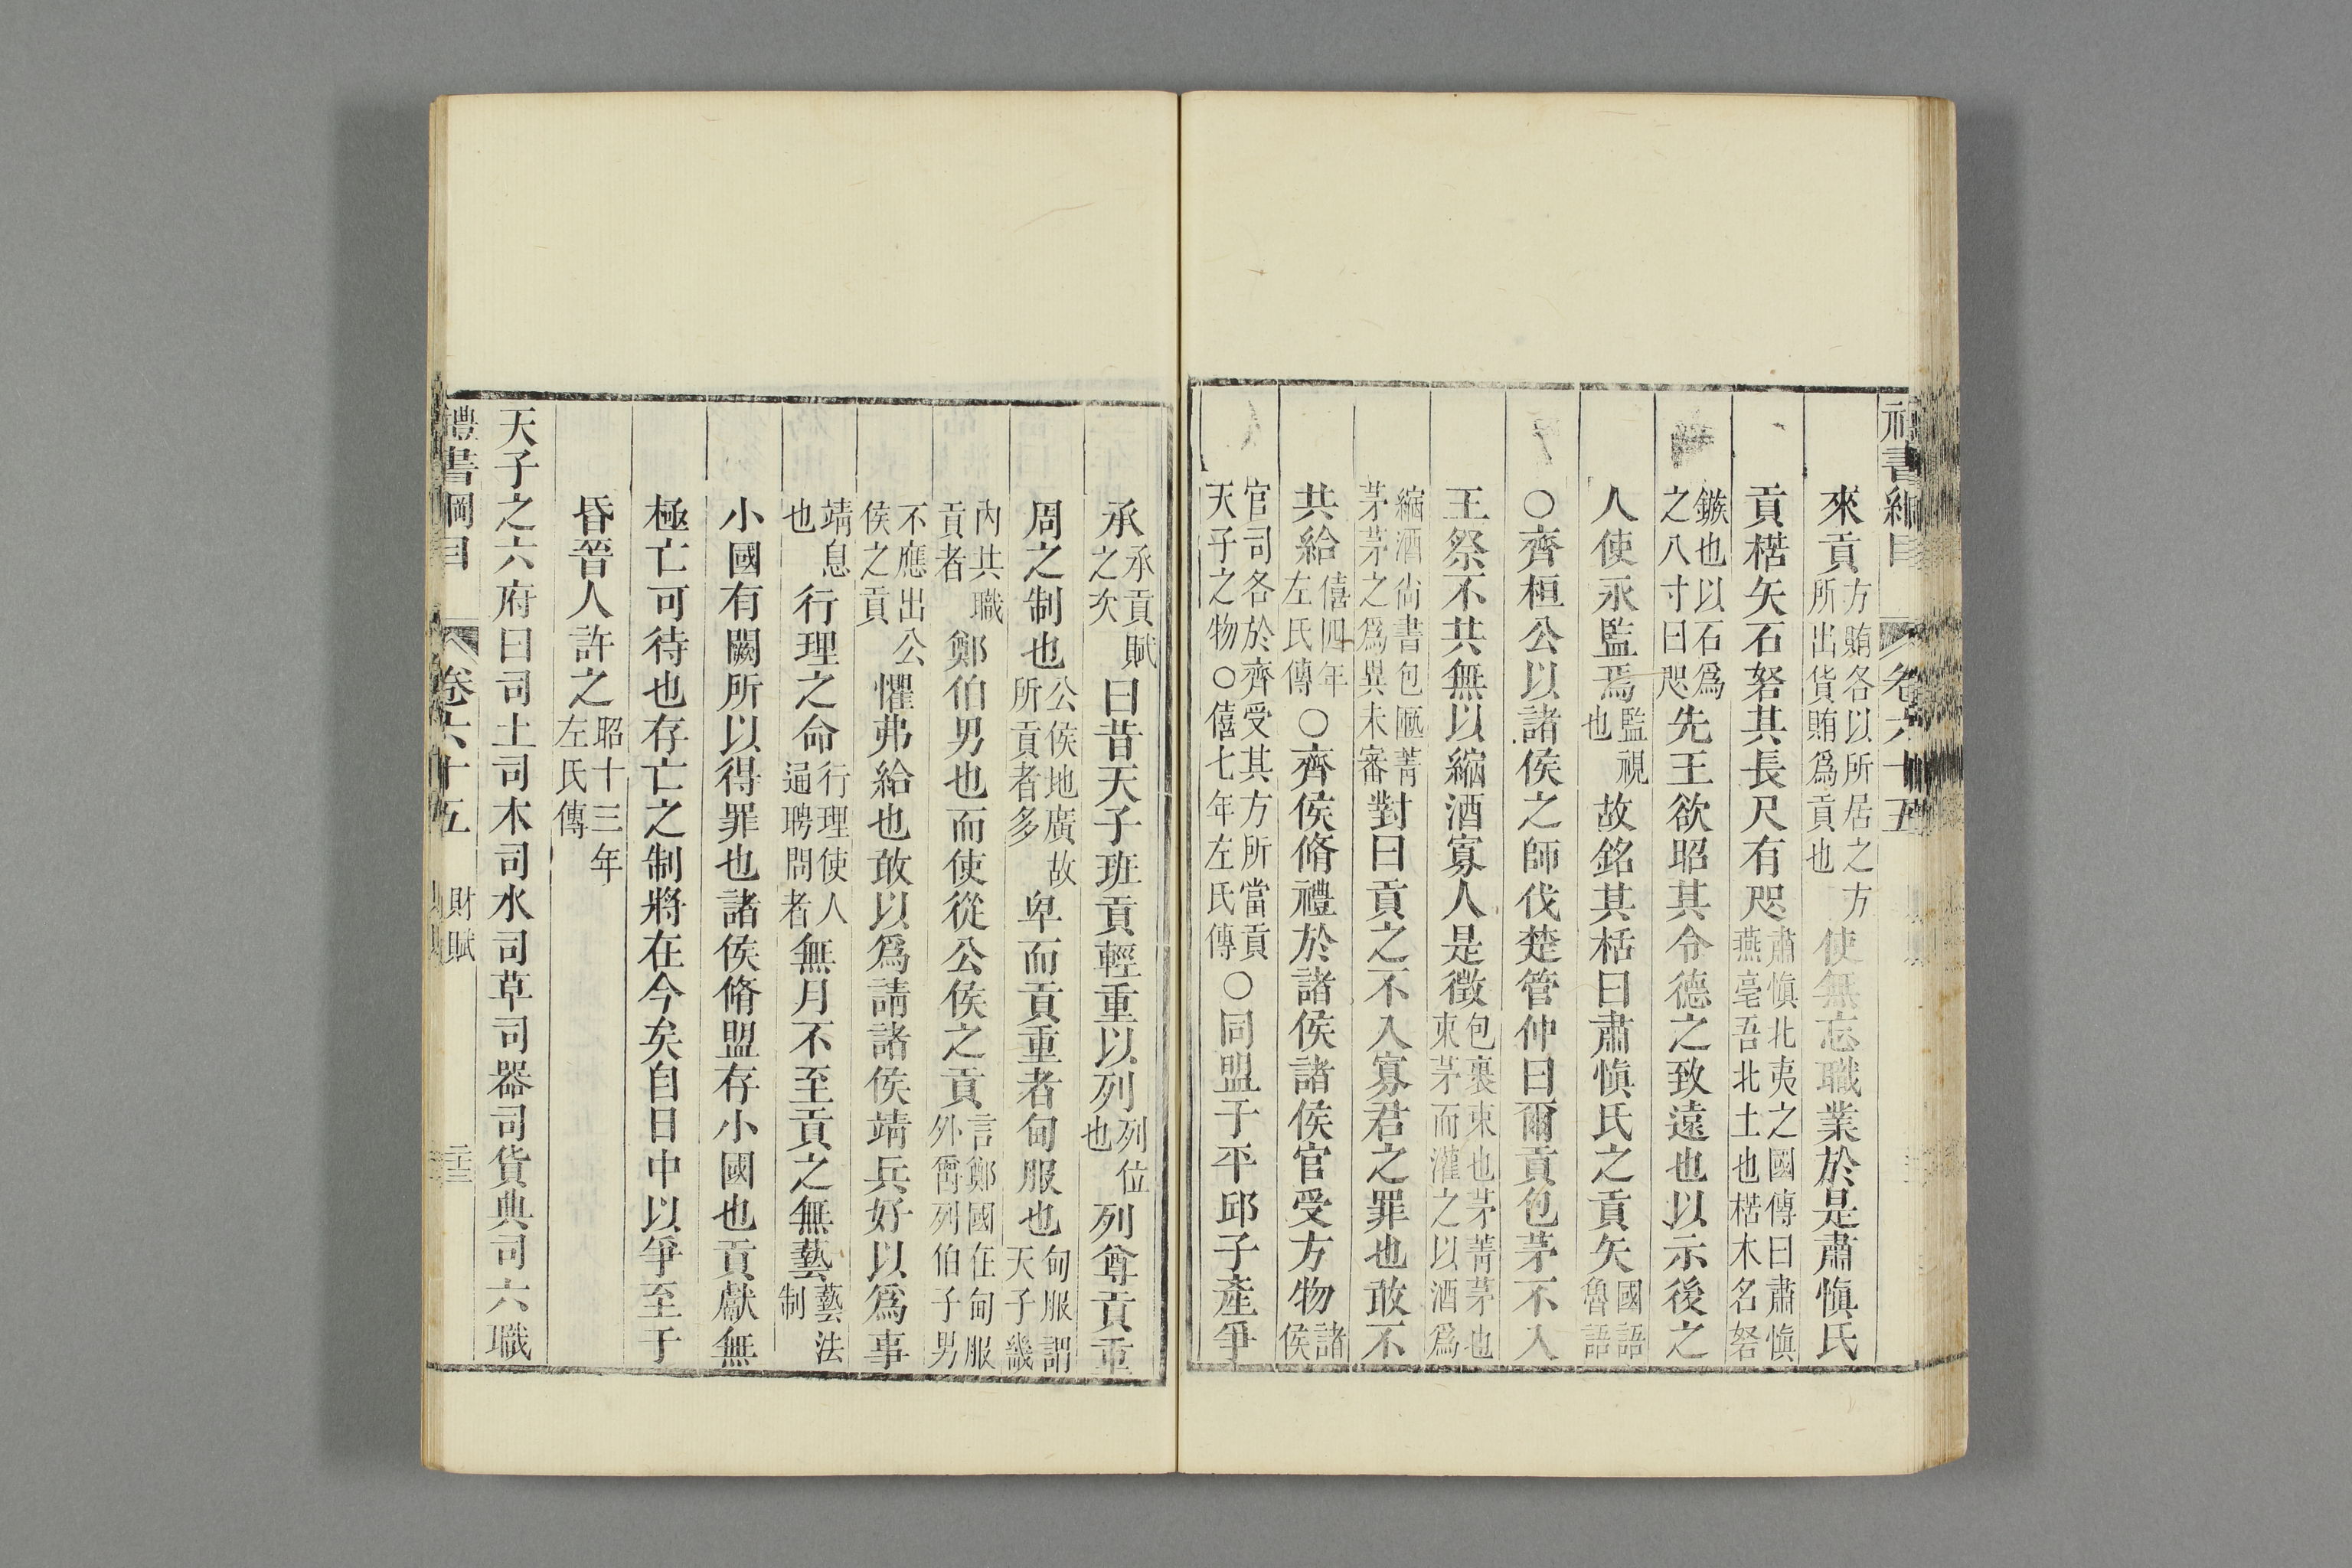 禮書綱目 卷六十五
來貢方賄各以所居之方所出貨賄爲貢也使無忘職業於是肅愼氏
貢楛矢石砮其長尺有咫肅愼北夷之國傳曰肅愼燕亳吾北土也楛木名砮
鏃也以石爲之八寸曰咫先王欲昭其令德之致遠也以示後之
人使永監焉監視也故銘其栝曰肅愼氏之貢矢國語魯語
○齊桓公以諸侯之師伐楚管仲曰爾貢包茅不入
王祭不共無以縮酒寡人是徵包裹束也茅菁茅也束茅而灌之以酒爲
縮酒尙書包匭菁茅茅之爲異未審對曰貢之不入寡君之罪也敢不
共給僖四年左氏傳○齊侯脩禮於諸侯諸侯官受方物諸侯
官司各於齊受其方所當貢天子之物○僖七年左氏傳○同盟于平邱子產爭
承承貢賦之次曰昔天子班貢輕重以列列位也列尊貢重
周之制也公侯地廣故所貢者多卑而貢重者甸服也甸服謂天子畿
內共職貢者鄭伯男也而使從公侯之貢言鄭國在甸服外爵列伯子男
不應出公侯之貢懼弗給也敢以爲請諸侯靖兵好以爲事
靖息也行理之命行理使人通聘問者無月不至貢之無藝藝法制
小國有闕所以得罪也諸侯脩盟存小國也貢獻無
極亡可待也存亡之制將在今矣自日中以爭至于
昏晉人許之昭十三年左氏傳
天子之六府曰司土司木司水司草司器司貨典司六職
禮書綱目 卷六十五 財賦 二十三